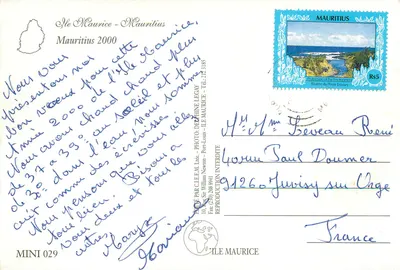 Ile Maurice - Mauritius
Mauritius 2000
Nous vous
présentons nos
bon voeux pour cette
Année 2000 de l'Ile Maurice,
Nous avons chaud, chaud plus
de 37 a 39° au soleil et plus
de 30° dans l'eau nous sommes
cuit comme des écrevisses
Nous pensons que vous allez
tous bien. Bisous a
vous deux et tous les
autres,
Maryse
MINI 029
MAURITIUS
Rs5
Mr Mme Leveau René
40 rue Paul Doumer
91260 Juvisy sur Orge
France
ILE MAURICE